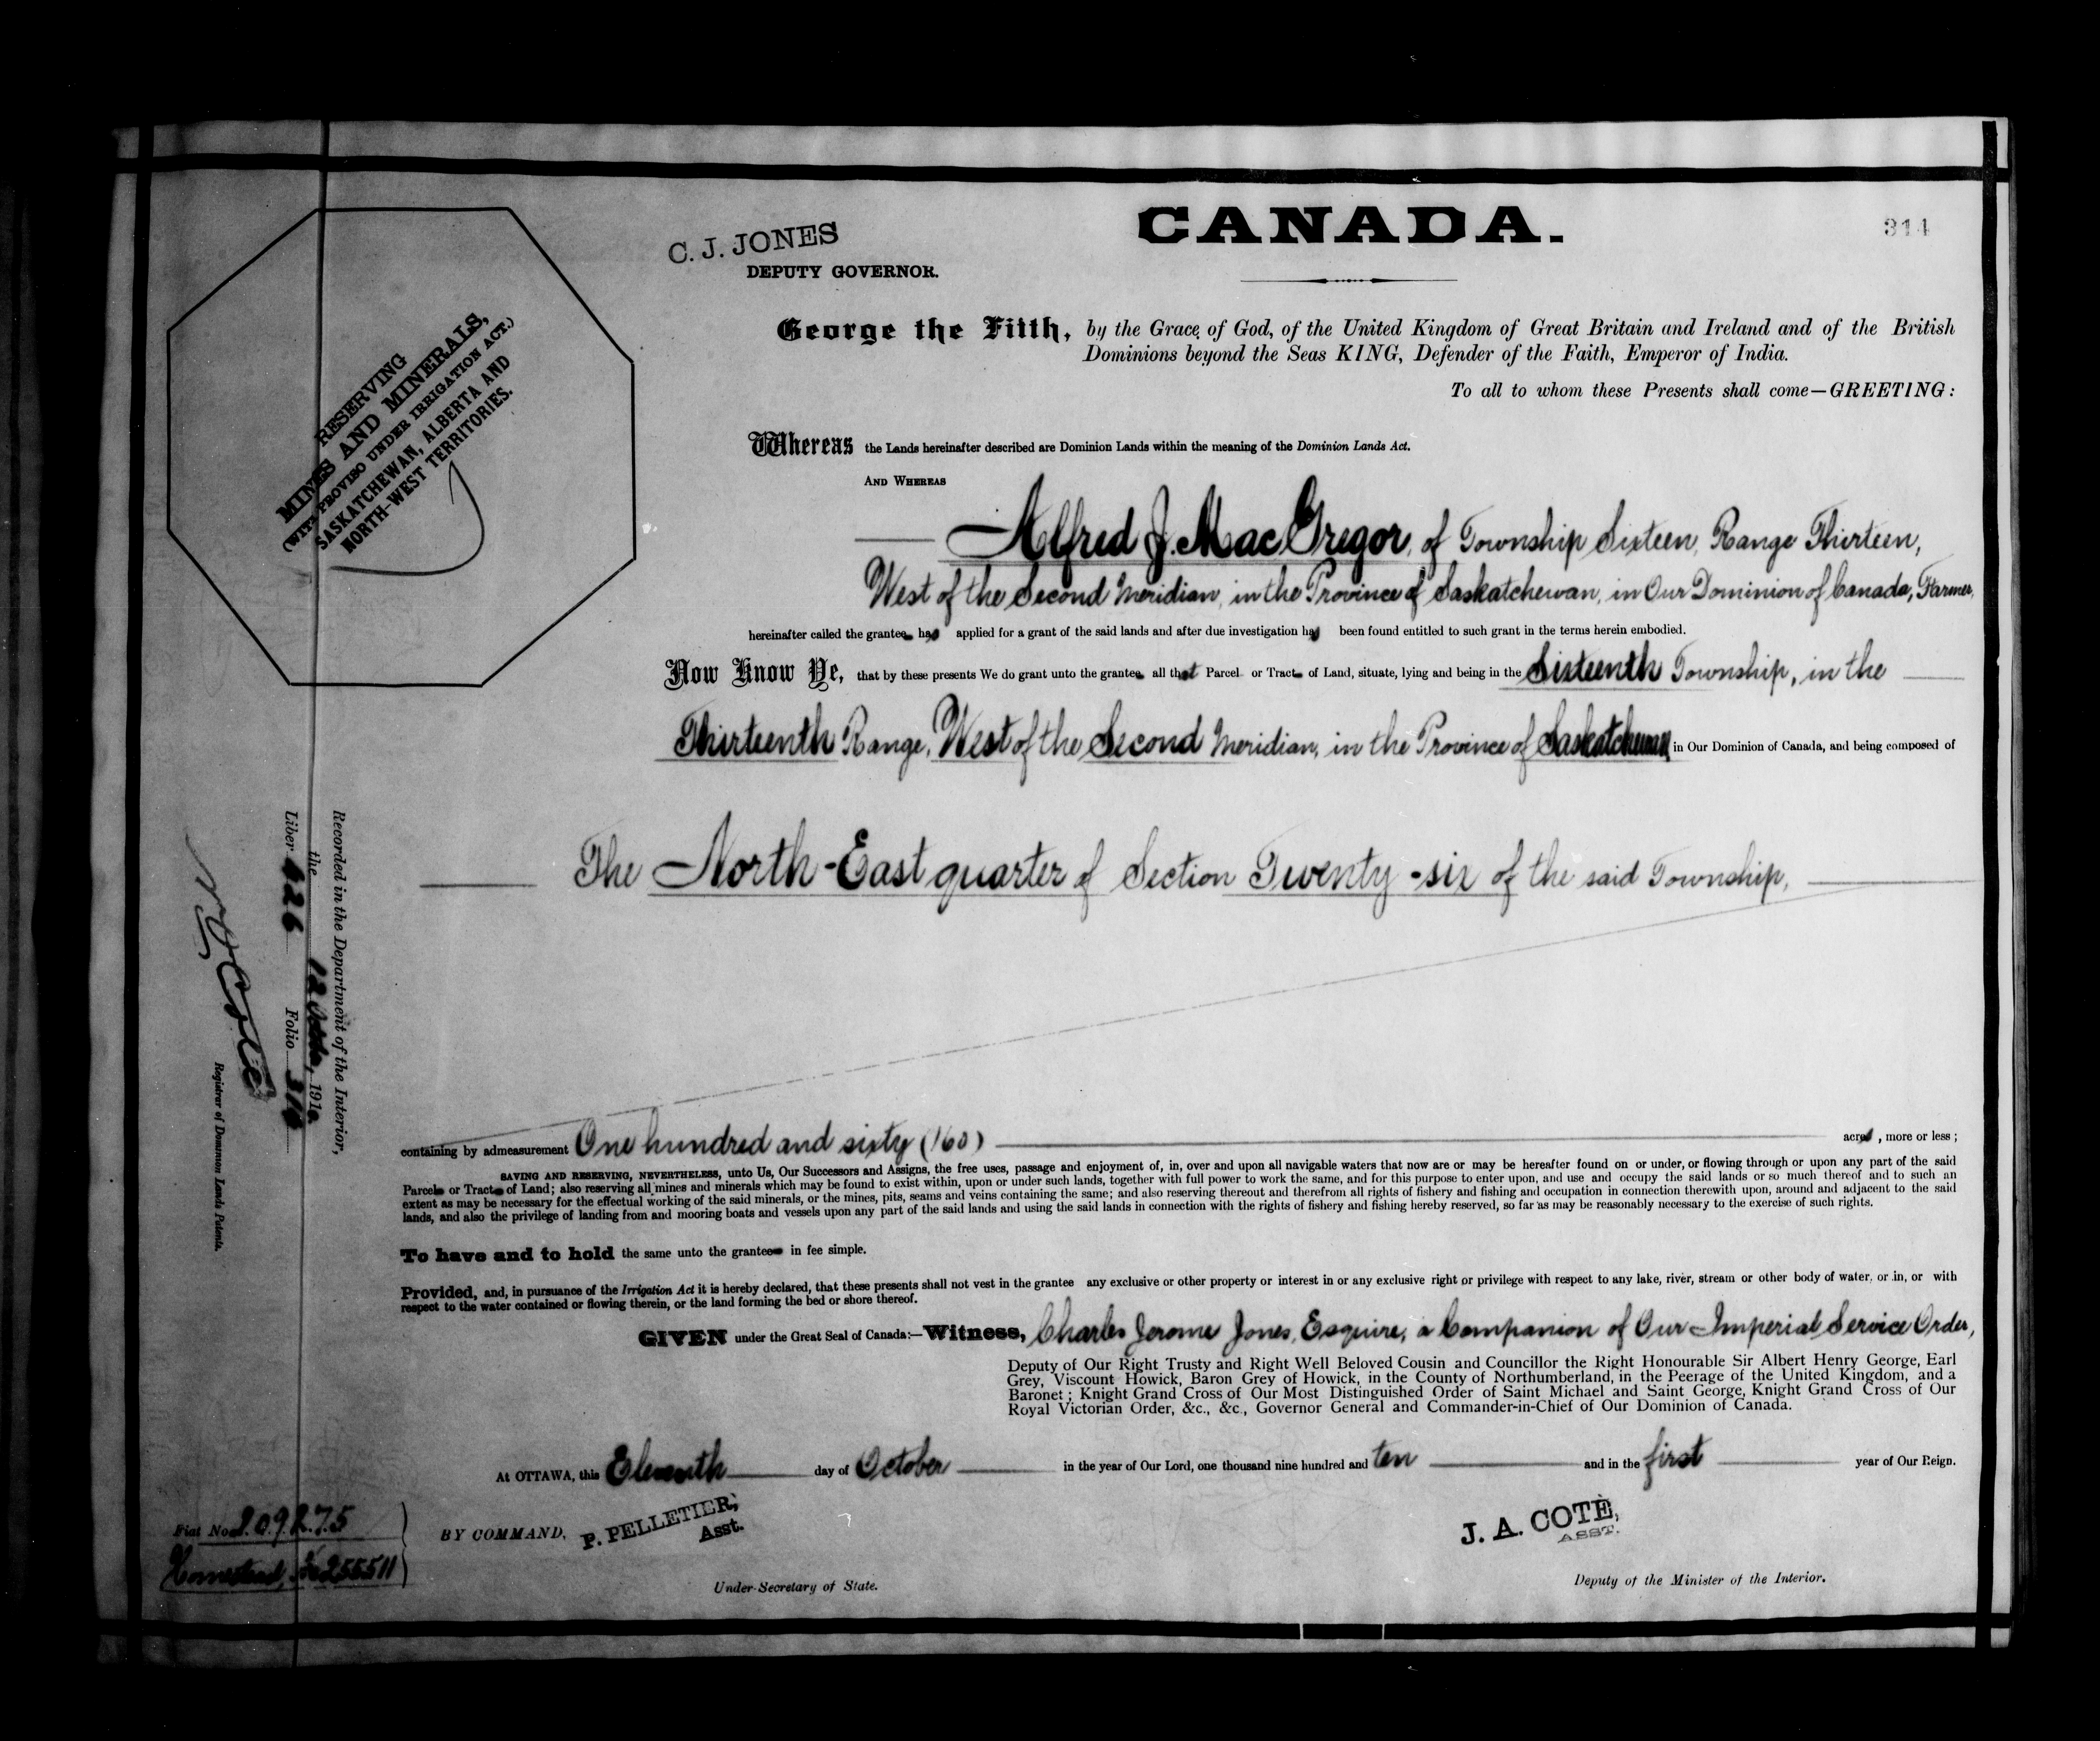 C. J. JONES
DEPUTY GOVERNOR.
CANADA.
314
RESERVING
MINES AND MINERALS,
(WITH PROVISO UNDER IRRIGATION ACT.)
SASKATCHEWAN, ALBERTA AND
NORTH-WEST TERRITORIES.
George the Fifth, by the Grace of God, of the United Kingdom of Great Britain and Ireland and of the British
Dominions beyond the Seas KING, Defender of the Faith, Emperor of India.
To all to whom these Presents shall come—GREETING:
Whereas the Lands hereinafter described are Dominion Lands within the meaning of the Dominion Lands Act.
AND WHEREAS
Alfred J. MacGregor, of Township Sixteen, Range Thirteen,
West of the Second Meridian, in the Province of Saskatchewan, in Our Dominion of Canada, Farmer,
hereinafter called the grantee has applied for a grant of the said lands and after due investigation has been found entitled to such grant in the terms herein embodied.
Now Know Ye, that by these presents We do grant unto the grantee all that Parcel or Tract of Land, situate, lying and being in the Sixteenth Township, in the
Thirteenth Range, West of the Second Meridian, in the Province of Saskatchewan in Our Dominion of Canada, and being composed of
The North-East quarter of Section Twenty-six of the said Township,
Recorded in the Department of the Interior,
the 12 October, 1910.
Liber 626 Folio 314
Registrar of Dominion Lands Patents.
containing by admeasurement One hundred and sixty (160) acres, more or less;
SAVING AND RESERVING, NEVERTHELESS, unto Us, Our Successors and Assigns, the free uses, passage and enjoyment of, in, over and upon all navigable waters that now are or may be hereafter found on or under, or flowing through or upon any part of the said
Parcel or Tract of Land; also reserving all mines and minerals which may be found to exist within, upon or under such lands, together with full power to work the same, and for this purpose to enter upon, and use and occupy the said lands or so much thereof and to such an
extent as may be necessary for the effectual working of the said minerals, or the mines, pits, seams and veins containing the same; and also reserving thereout and therefrom all rights of fishery and fishing and occupation in connection therewith upon, around and adjacent to the said
lands, and also the privilege of landing from and mooring boats and vessels upon any part of the said lands and using the said lands in connection with the rights of fishery and fishing hereby reserved, so far as may be reasonably necessary to the exercise of such rights.
To have and to hold the same unto the grantee in fee simple.
Provided, and, in pursuance of the Irrigation Act it is hereby declared, that these presents shall not vest in the grantee any exclusive or other property or interest in or any exclusive right or privilege with respect to any lake, river, stream or other body of water, or in, or with
respect to the water contained or flowing therein, or the land forming the bed or shore thereof.
GIVEN under the Great Seal of Canada:—Witness, Charles Jerome Jones, Esquire, a Companion of Our Imperial Service Order,
Deputy of Our Right Trusty and Right Well Beloved Cousin and Councillor the Right Honourable Sir Albert Henry George, Earl
Grey, Viscount Howick, Baron Grey of Howick, in the County of Northumberland, in the Peerage of the United Kingdom, and a
Baronet; Knight Grand Cross of Our Most Distinguished Order of Saint Michael and Saint George, Knight Grand Cross of Our
Royal Victorian Order, &c., &c., Governor General and Commander-in-Chief of Our Dominion of Canada.
At OTTAWA, this Eleventh day of October in the year of Our Lord, one thousand nine hundred and ten and in the first year of Our Reign.
Fiat No. 209275
Homestead, 255511
BY COMMAND, P. PELLETIER,
Asst.
Under-Secretary of State.
J. A. COTE,
ASST.
Deputy of the Minister of the Interior.